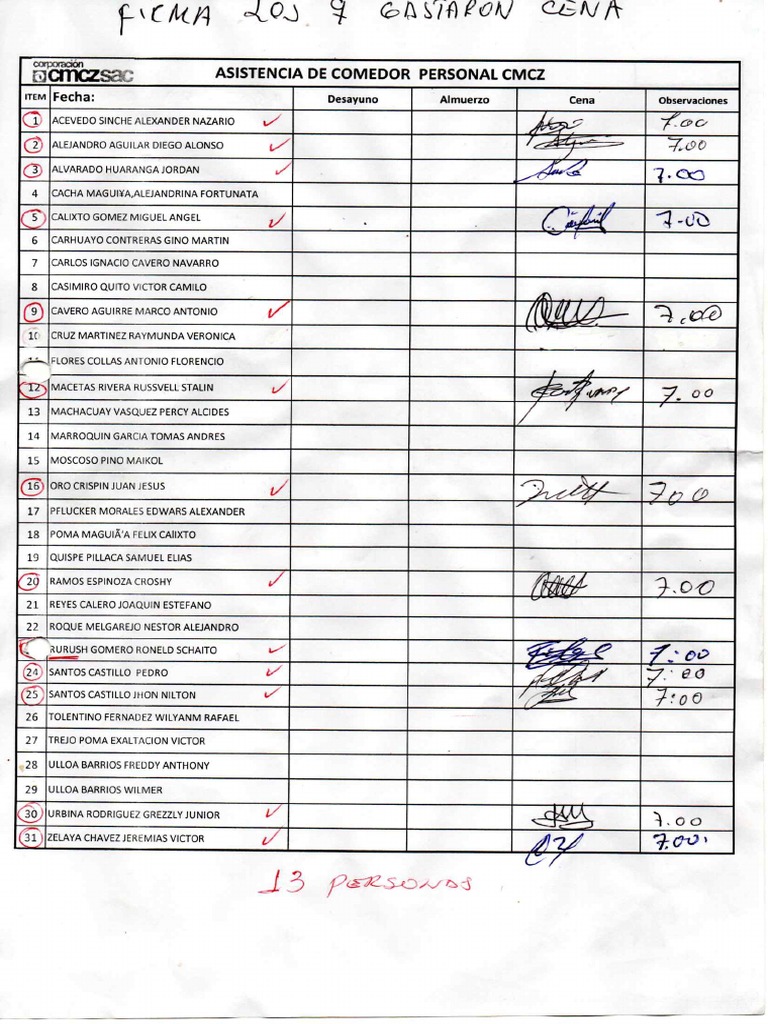 FIRMA LOS 7 GASTARON CENA
corporación
cmczsac
ASISTENCIA DE COMEDOR PERSONAL CMCZ
ITEM Fecha: Desayuno Almuerzo Cena Observaciones
1 ACEVEDO SINCHE ALEXANDER NAZARIO 7.00
2 ALEJANDRO AGUILAR DIEGO ALONSO 7.00
3 ALVARADO HUARANGA JORDAN 7.00
4 CACHA MAGUIYA,ALEJANDRINA FORTUNATA
5 CALIXTO GOMEZ MIGUEL ANGEL 7-00
6 CARHUAYO CONTRERAS GINO MARTIN
7 CARLOS IGNACIO CAVERO NAVARRO
8 CASIMIRO QUITO VICTOR CAMILO
9 CAVERO AGUIRRE MARCO ANTONIO 7.00
10 CRUZ MARTINEZ RAYMUNDA VERONICA
FLORES COLLAS ANTONIO FLORENCIO
12 MACETAS RIVERA RUSSVELL STALIN 7.00
13 MACHACUAY VASQUEZ PERCY ALCIDES
14 MARROQUIN GARCIA TOMAS ANDRES
15 MOSCOSO PINO MAIKOL
16 ORO CRISPIN JUAN JESUS 700
17 PFLUCKER MORALES EDWARS ALEXANDER
18 POMA MAGUIÃ'A FELIX CAlIXTO
19 QUISPE PILLACA SAMUEL ELIAS
20 RAMOS ESPINOZA CROSHY 7.00
21 REYES CALERO JOAQUIN ESTEFANO
22 ROQUE MELGAREJO NESTOR ALEJANDRO
RURUSH GOMERO RONELD SCHAITO 7:00
24 SANTOS CASTILLO PEDRO 7:00
25 SANTOS CASTILLO JHON NILTON 7:00
26 TOLENTINO FERNADEZ WILYANM RAFAEL
27 TREJO POMA EXALTACION VICTOR
28 ULLOA BARRIOS FREDDY ANTHONY
29 ULLOA BARRIOS WILMER
30 URBINA RODRIGUEZ GREZZLY JUNIOR 7.00
31 ZELAYA CHAVEZ JEREMIAS VICTOR 7.00
13 PERSONAS